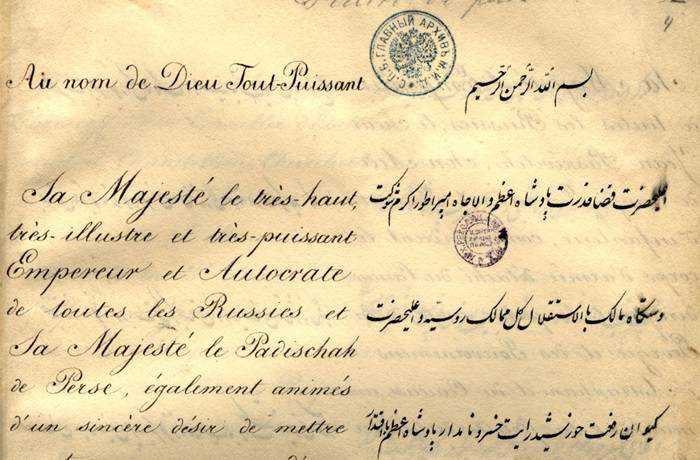 Au nom de Dieu Tout-Puissant
Sa Majesté le très-haut,
très-illustre et très-puissant
Empereur et Autocrate
de toutes les Russies et
Sa Majesté le Padischah
de Perse, également animés
d'un sincère désir de mettre
С.П.Б. ГЛАВНЫЙ АРХИВЪ М.И.Д.
بسم الله الرحمن الرحیم
اعلیحضرت قضا قدرت پادشاه اعظم والاجاه امپراطور اکرم شوکت
دستگاه مالک بالاستقلال کل ممالک روسیه و اعلیحضرت
کیوان رفعت خورشید رایت خسرو نامدار پادشاه اعظم با اقتدار